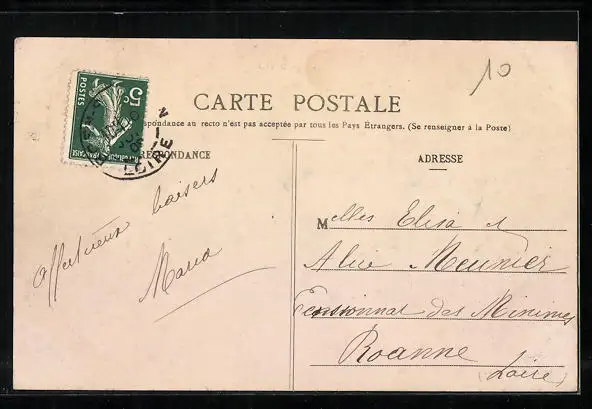 10
5c
POSTES
CARTE POSTALE
spondance au recto n'est pas acceptée par tous les Pays Etrangers. (Se renseigner à la Poste)
RESPONDANCE
ADRESSE
LOIRE
Affectueux baisers
Maria
Melles Elisa et
Alice Meunier
Pensionnat des Minimes
Roanne
(Loire)